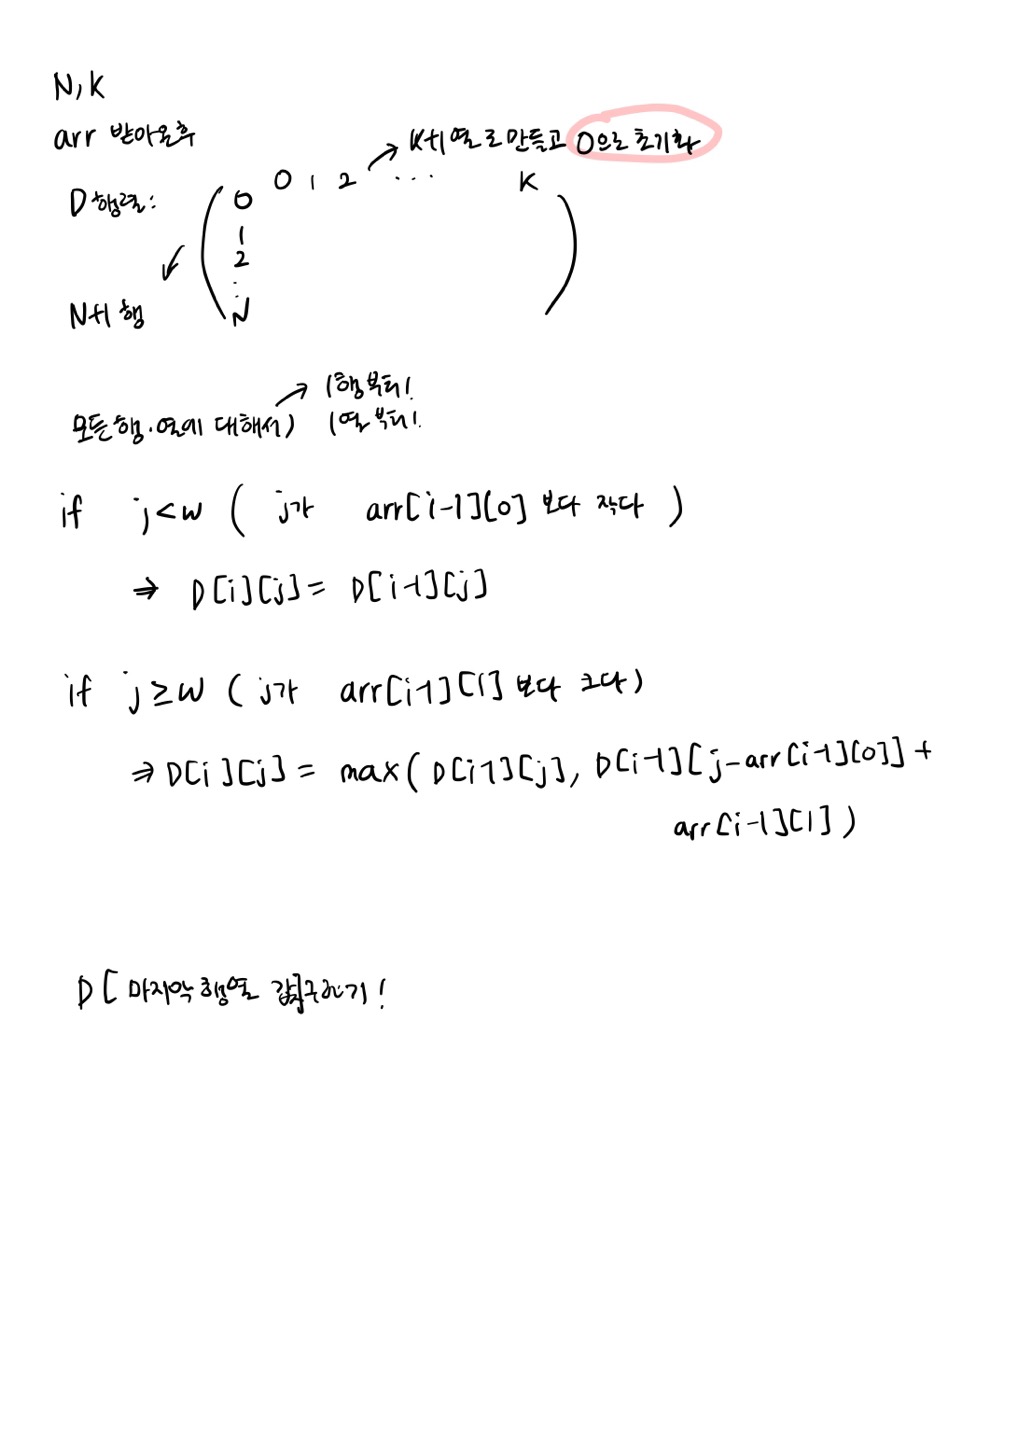 N, K
arr 받아온후
K+1 열로 만들고 0으로 초기화
0 1 2 ... K
D 행렬:
0
1
2
:
N
N+1 행
1행 부터!
모든 행·열에 대해서) 1열 부터!
if j<w ( j가 arr[i-1][0] 보다 작다 )
⇒ D[i][j] = D[i-1][j]
if j≥w ( j가 arr[i-1][1] 보다 크다)
⇒ D[i][j] = max( D[i-1][j], D[i-1][j-arr[i-1][0]] +
arr[i-1][1] )
D[ 마지막 행열 값]구하기!